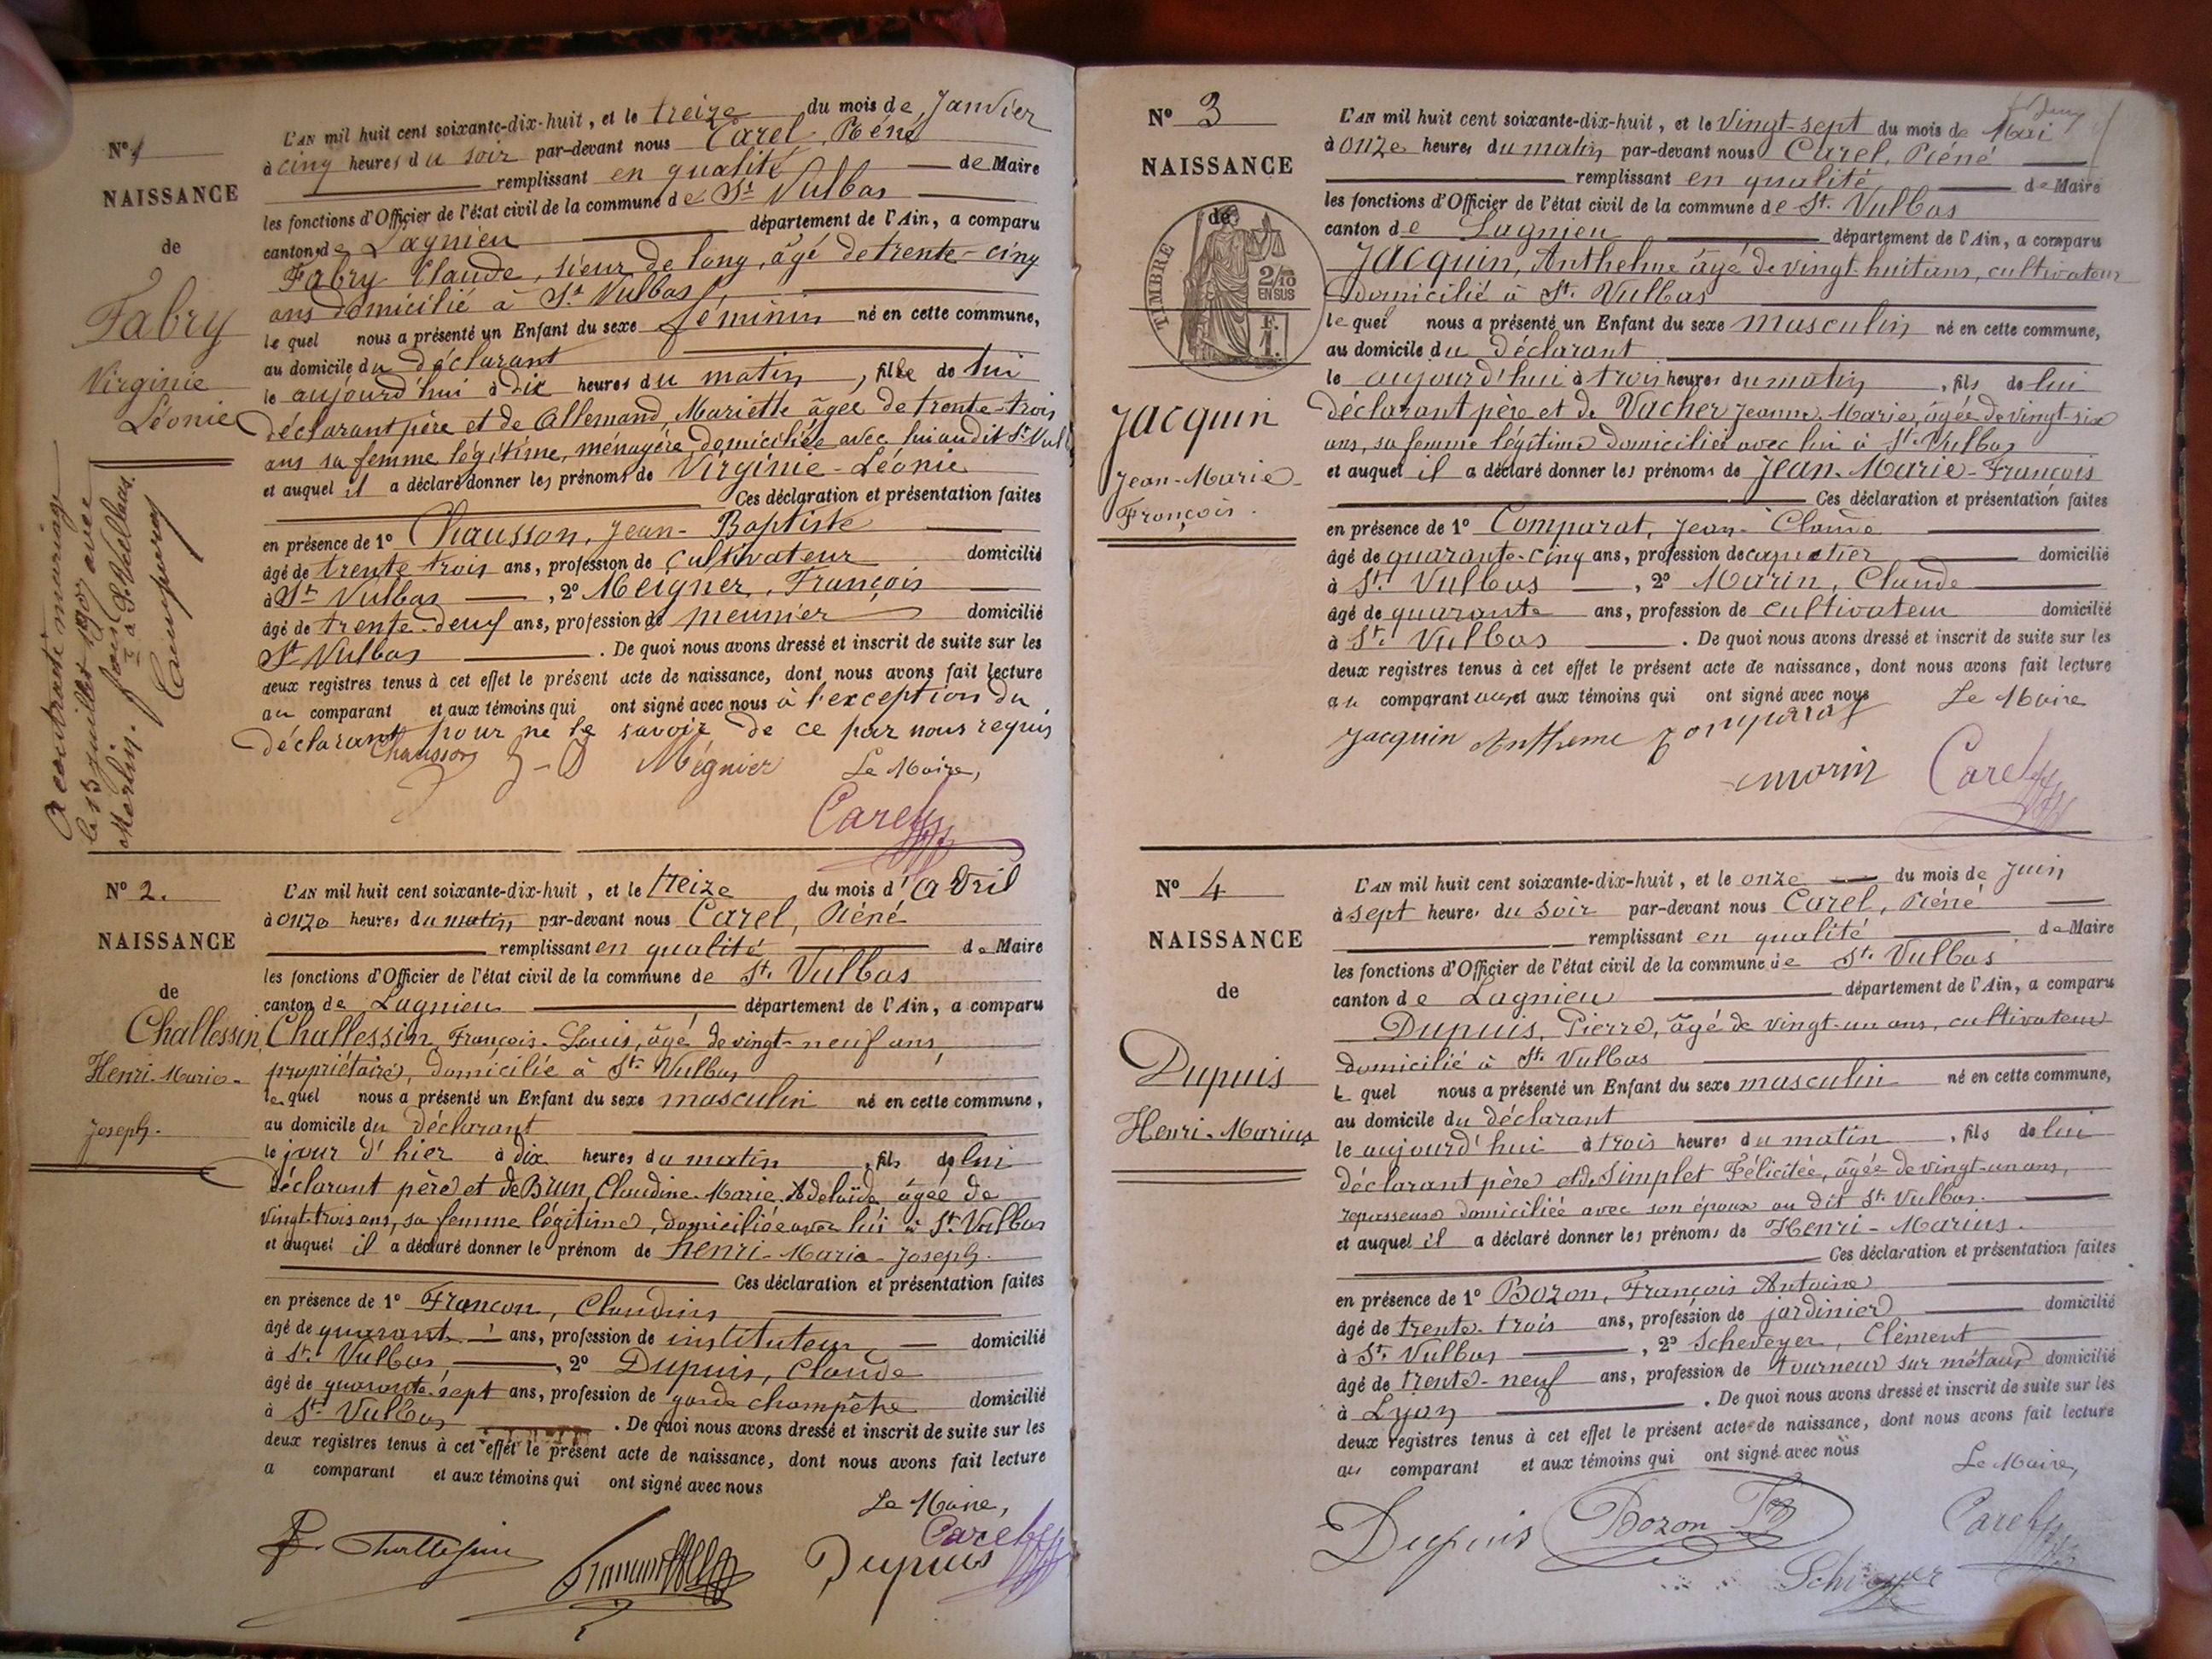 N° 1
NAISSANCE
de
Fabry
Virginie
Léonie
A contracté mariage
le 13 juillet 1907 avec
Merlin
à St Vulbas.
L'AN mil huit cent soixante-dix-huit, et le treize du mois de Janvier
à cinq heures du soir par-devant nous Carel, Réné
remplissant en qualité de Maire
les fonctions d'Officier de l'état civil de la commune de St Vulbas
canton de Lagnieu département de l'Ain, a comparu
Fabry Claude, sieur de long, âgé de trente-cinq
ans domicilié à St Vulbas
le quel nous a présenté un Enfant du sexe féminin né en cette commune,
au domicile du déclarant
le aujourd'hui à dix heures du matin, fille de lui
déclarant père et de Allemand Mariette âgée de trente-trois
ans sa femme légitime, ménagère domiciliée avec lui audit St Vulb
et auquel il a déclaré donner les prénoms de Virginie-Léonie
Ces déclaration et présentation faites
en présence de 1° Chausson, Jean-Baptiste
âgé de trente trois ans, profession de cultivateur domicilié
à St Vulbas, 2° Meigner, François
âgé de trente-deux ans, profession de meunier domicilié
St Vulbas. De quoi nous avons dressé et inscrit de suite sur les
deux registres tenus à cet effet le présent acte de naissance, dont nous avons fait lecture
au comparant et aux témoins qui ont signé avec nous à l'exception du
déclarant pour ne le savoir de ce par nous requis
Chausson J-B Mégnier Le Maire,
Carel
N° 2.
NAISSANCE
de
Challessin
Henri-Marie-
Joseph.
L'AN mil huit cent soixante-dix-huit, et le treize du mois d'Avril
à onze heures du matin par-devant nous Carel, Réné
remplissant en qualité de Maire
les fonctions d'Officier de l'état civil de la commune de St. Vulbas
canton de Lagnieu département de l'Ain, a comparu
Challessin, François-Louis, âgé de vingt-neuf ans,
propriétaire, domicilié à St Vulbas
le quel nous a présenté un Enfant du sexe masculin né en cette commune,
au domicile du déclarant
le jour d'hier à dix heures du matin, fils de lui
déclarant père et de Brun, Claudine-Marie-Adelaïde âgée de
vingt-trois ans, sa femme légitime, domiciliée avec lui à St Vulbas
et auquel il a déclaré donner le prénom de henri-Marie-Joseph.
Ces déclaration et présentation faites
en présence de 1° Francon, Claudius
âgé de quarante ans, profession de instituteur domicilié
à St. Vulbas, 2° Dupuis, Claude
âgé de quarante-sept ans, profession de garde champêtre domicilié
à St Vulbas. De quoi nous avons dressé et inscrit de suite sur les
deux registres tenus à cet effet le présent acte de naissance, dont nous avons fait lecture
a comparant et aux témoins qui ont signé avec nous
Le Maire,
Carel
Challessin Dupuis
N° 3
NAISSANCE
de
TIMBRE
2/10
EN SUS
F.
1.
Jacquin
Jean-Marie-
François.
L'AN mil huit cent soixante-dix-huit, et le Vingt-sept du mois de Mai
à onze heures du matin par-devant nous Carel, Réné
remplissant en qualité de Maire
les fonctions d'Officier de l'état civil de la commune de St. Vulbas
canton de Lagnieu département de l'Ain, a comparu
Jacquin, Anthelme âgé de vingt-huit ans, cultivateur
domicilié à St. Vulbas
le quel nous a présenté un Enfant du sexe masculin né en cette commune,
au domicile du déclarant
le aujourd'hui à trois heures du matin, fils de lui
déclarant père et de Vacher Jeanne-Marie, âgée de vingt-six
ans, sa femme légitime domiciliée avec lui à St. Vulbas
et auquel il a déclaré donner les prénoms de Jean-Marie-François
Ces déclaration et présentation faites
en présence de 1° Comparat, Jean-Claude
âgé de quarante-cinq ans, profession de domicilié
à St. Vulbas, 2° Marin, Claude
âgé de quarante ans, profession de cultivateur domicilié
à St. Vulbas. De quoi nous avons dressé et inscrit de suite sur les
deux registres tenus à cet effet le présent acte de naissance, dont nous avons fait lecture
au comparant et aux témoins qui ont signé avec nous Le Maire
Jacquin Antheme
Morin Carel
N° 4
NAISSANCE
de
Dupuis
Henri-Marius
L'AN mil huit cent soixante-dix-huit, et le onze du mois de Juin
à sept heures du soir par-devant nous Carel, Réné
remplissant en qualité de Maire
les fonctions d'Officier de l'état civil de la commune de St. Vulbas
canton de Lagnieu département de l'Ain, a comparu
Dupuis, Pierre, âgé de vingt-un ans, cultivateur
domicilié à St. Vulbas
le quel nous a présenté un Enfant du sexe masculin né en cette commune,
au domicile du déclarant
le aujourd'hui à trois heures du matin, fils de lui
déclarant père et de Simplet Félicitée, âgée de vingt-un ans,
repasseuse domiciliée avec son époux au dit St. Vulbas.
et auquel il a déclaré donner les prénoms de Henri-Marius.
Ces déclaration et présentation faites
en présence de 1° Bozon, François Antoine
âgé de trente-trois ans, profession de jardinier domicilié
à St. Vulbas, 2° Scheveyer, Clément
âgé de trente-neuf ans, profession de tourneur sur métaux domicilié
à Lyon. De quoi nous avons dressé et inscrit de suite sur les
deux registres tenus à cet effet le présent acte de naissance, dont nous avons fait lecture
au comparant et aux témoins qui ont signé avec nous
Le Maire,
Dupuis Bozon Carel